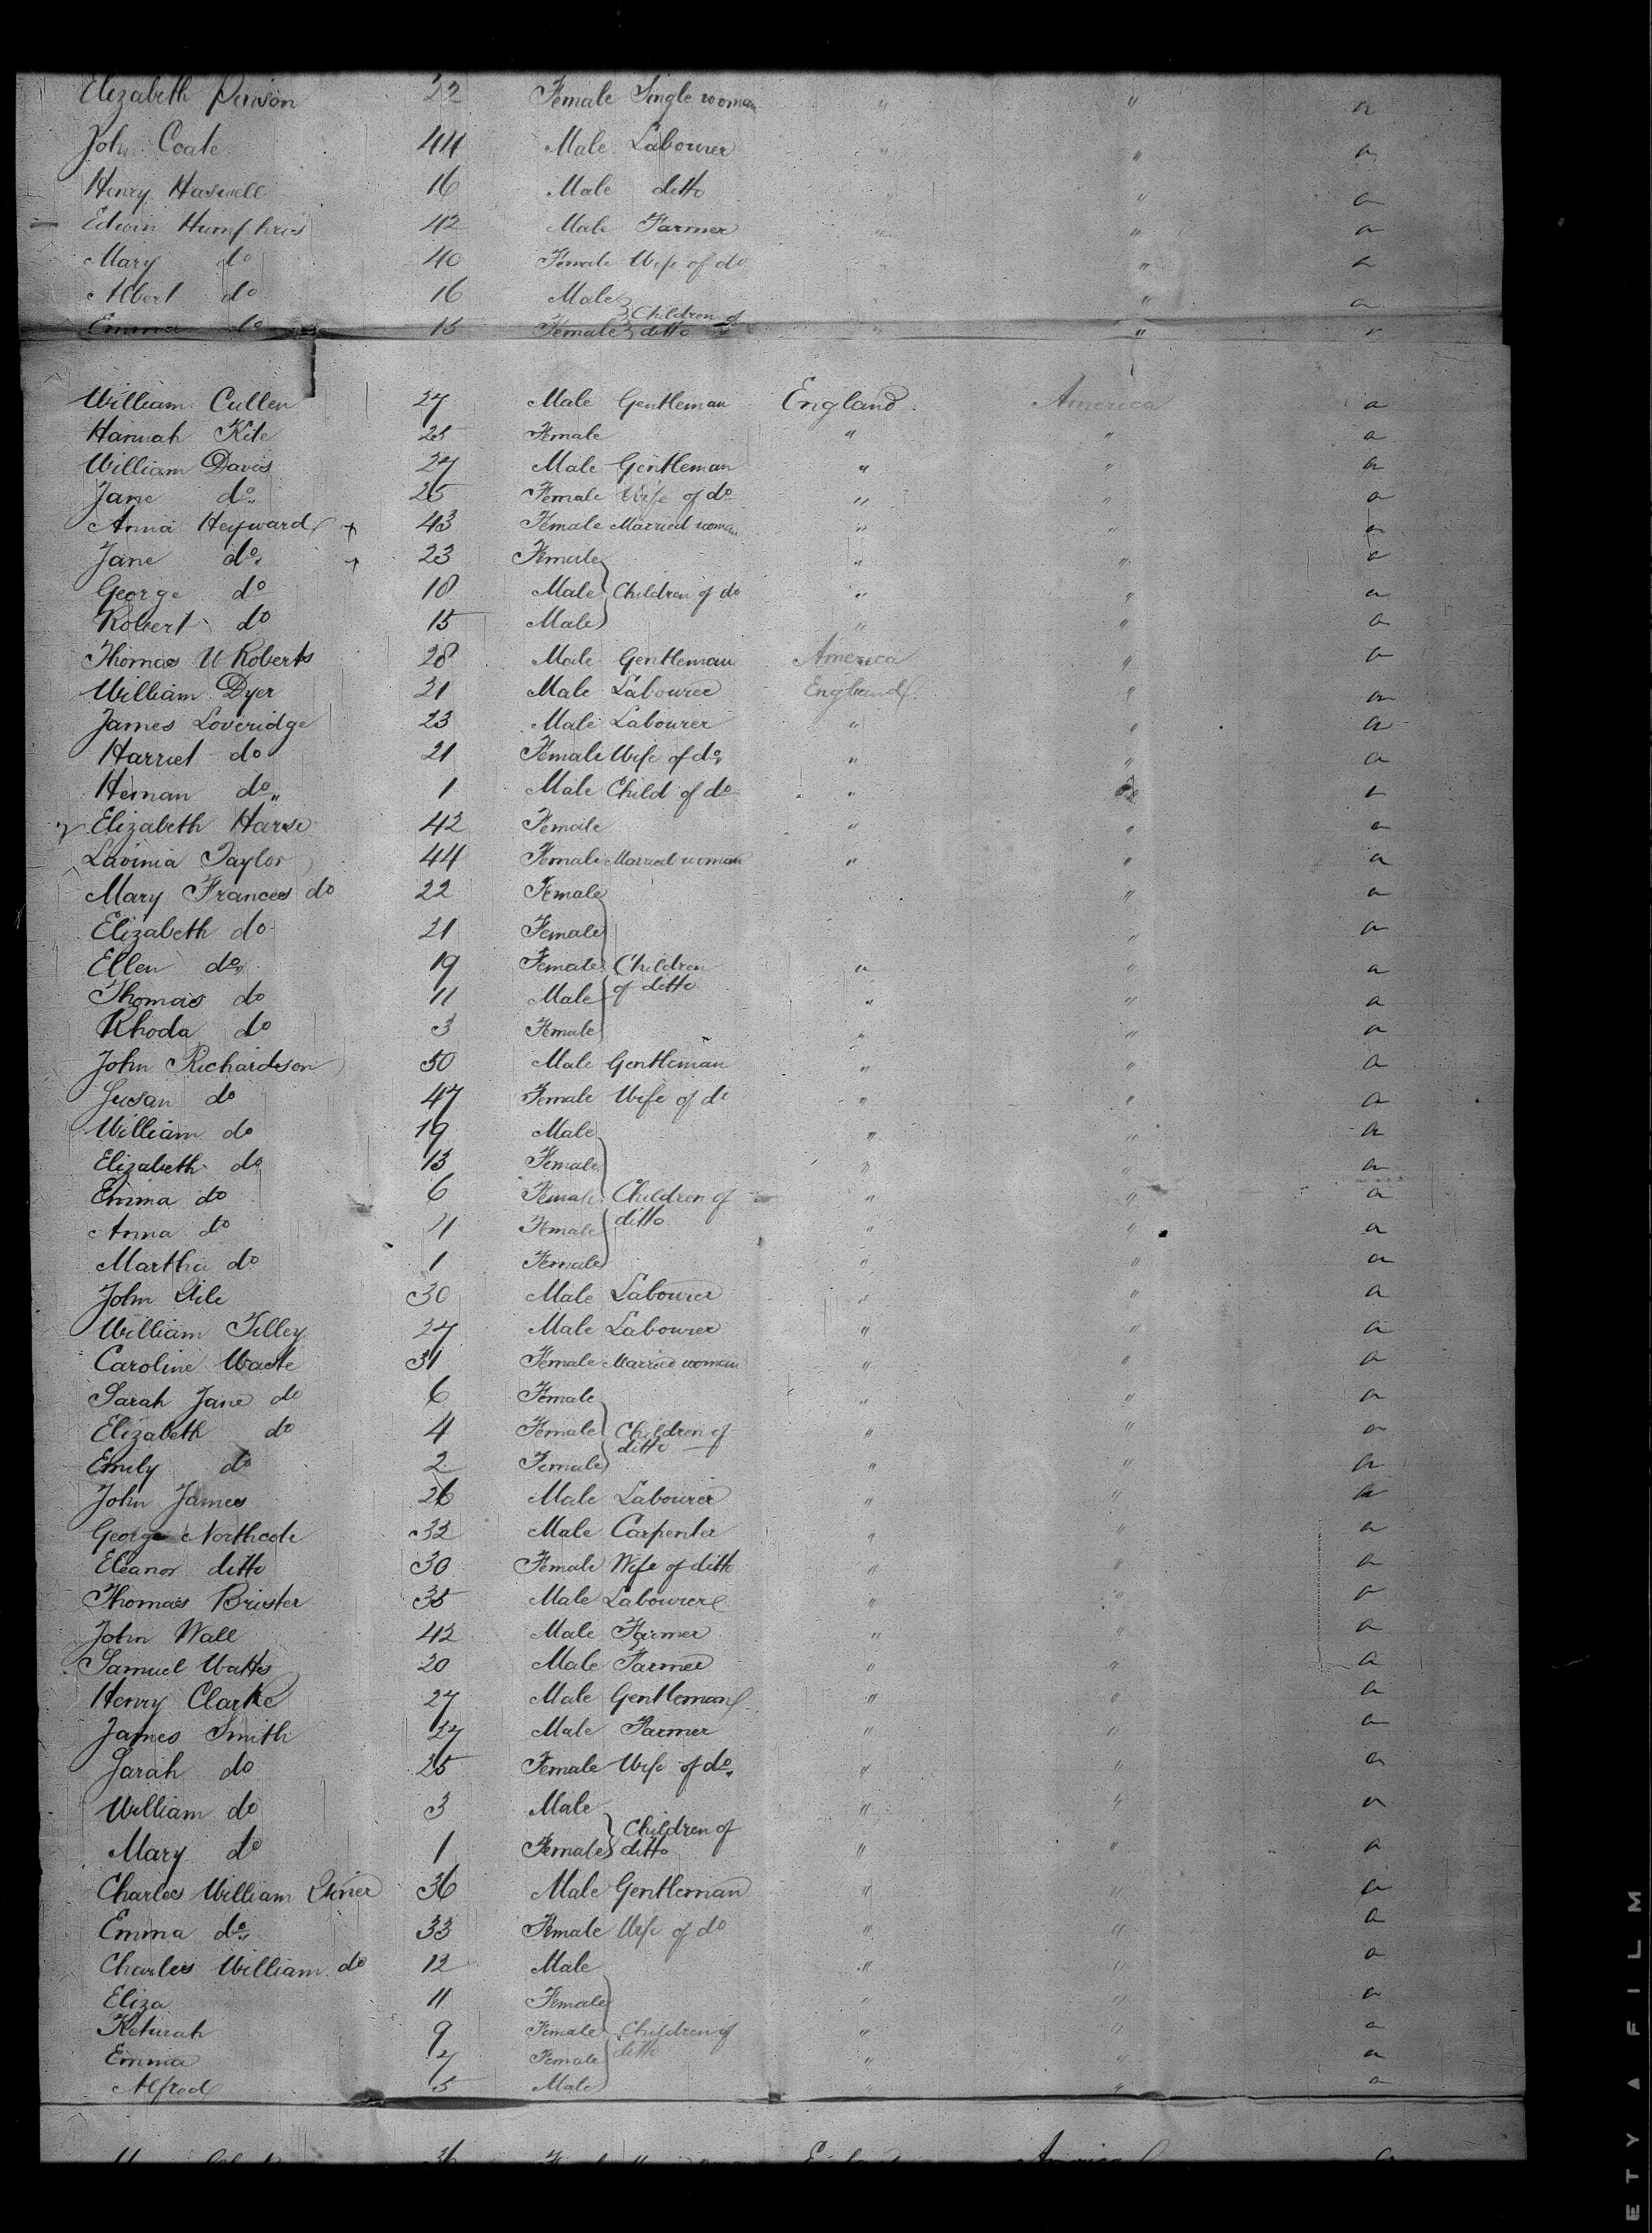 Elizabeth Pinson 22 Female Single woman " " a
John Coate 44 Male Labourer " " a
Henry Haswell 16 Male ditto " " a
Edwin Humphries 42 Male Farmer " " a
Mary do 40 Female Wife of do " " a
Albert do 16 Male " a
Emma do 15 Female Children of ditto " " a
William Cullen 27 Male Gentleman England America a
Hannah Kite 25 Female " " a
William Davis 27 Male Gentleman " " a
Jane do 25 Female Wife of do " " a
Anna Heyward + 43 Female Married woman " " a
Jane do + 23 Female " " a
George do 18 Male Children of do " " a
Robert do 15 Male " " a
Thomas W Roberts 28 Male Gentleman America " a
William Dyer 31 Male Labourer England " a
James Loveridge 23 Male Labourer " " a
Harriet do 21 Female Wife of do " " a
Heman do 1 Male Child of do " a
Elizabeth Harse 42 Female " " a
Lavinia Taylor 44 Female Married woman " " a
Mary Frances do 22 Female " a
Elizabeth do 21 Female " a
Ellen do 19 Female Children " " a
Thomas do 11 Male of ditto " " a
Rhoda do 3 Female " " a
John Richardson 50 Male Gentleman " " a
Susan do 47 Female Wife of do " " a
William do 19 Male " " a
Elizabeth do 13 Female " " a
Emma do 6 Female Children of " " a
Anna do 4 Female ditto " " a
Martha do 1 Female " " a
John 30 Male Labourer " " a
William Tilley 27 Male Labourer " " a
Caroline 31 Female Married woman " " a
Sarah Jane do 6 Female " " a
Elizabeth do 4 Female Children of ditto " " a
Emily do 2 Female " " a
John James 26 Male Labourer " " a
George Northcote 32 Male Carpenter " " a
Eleanor ditto 30 Female Wife of ditto " " a
Thomas Brister 35 Male Labourer " " a
John Wall 42 Male Farmer " " a
Samuel Watts 20 Male Farmer " " a
Henry Clarke 27 Male Gentleman " " a
James Smith 27 Male Farmer " " a
Sarah do 25 Female Wife of do " " a
William do 3 Male " " a
Mary do 1 Female Children of ditto " " a
Charles William 36 Male Gentleman " " a
Emma do 33 Female Wife of do " " a
Charles William do 12 Male " " a
Eliza 11 Female " " a
Keturah 9 Female Children of " " a
Emma 7 Female ditto " " a
Alfred 5 Male " " a
36 England America a
ETY A FILM